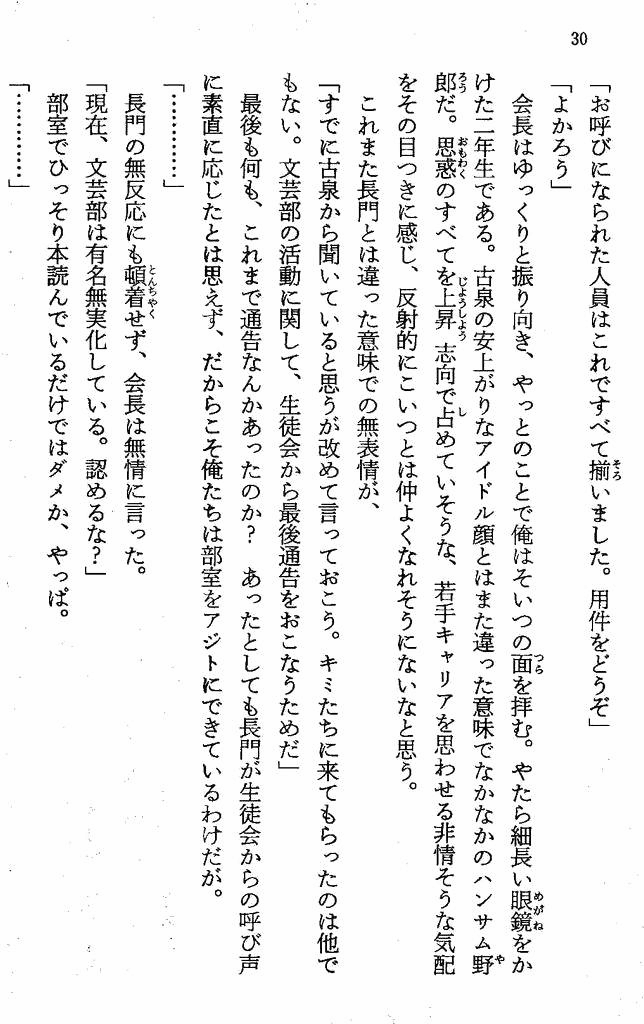 30
「お呼びになられた人員はこれですべて揃いました。用件をどうぞ」
「よかろう」
　会長はゆっくりと振り向き、やっとのことで俺はそいつの面を拝む。やたら細長い眼鏡をか
けた二年生である。古泉の安上がりなアイドル顔とはまた違った意味でなかなかのハンサム野
郎だ。思惑のすべてを上昇志向で占めていそうな、若手キャリアを思わせる非情そうな気配
をその目つきに感じ、反射的にこいつとは仲よくなれそうにないなと思う。
　これまた長門とは違った意味での無表情が、
「すでに古泉から聞いていると思うが改めて言っておこう。キミたちに来てもらったのは他で
もない。文芸部の活動に関して、生徒会から最後通告をおこなうためだ」
　最後も何も、これまで通告なんかあったのか？　あったとしても長門が生徒会からの呼び声
に素直に応じたとは思えず、だからこそ俺たちは部室をアジトにできているわけだが。
「…………」
　長門の無反応にも頓着せず、会長は無情に言った。
「現在、文芸部は有名無実化している。認めるな？」
　部室でひっそり本読んでいるだけではダメか、やっぱ。
「…………」